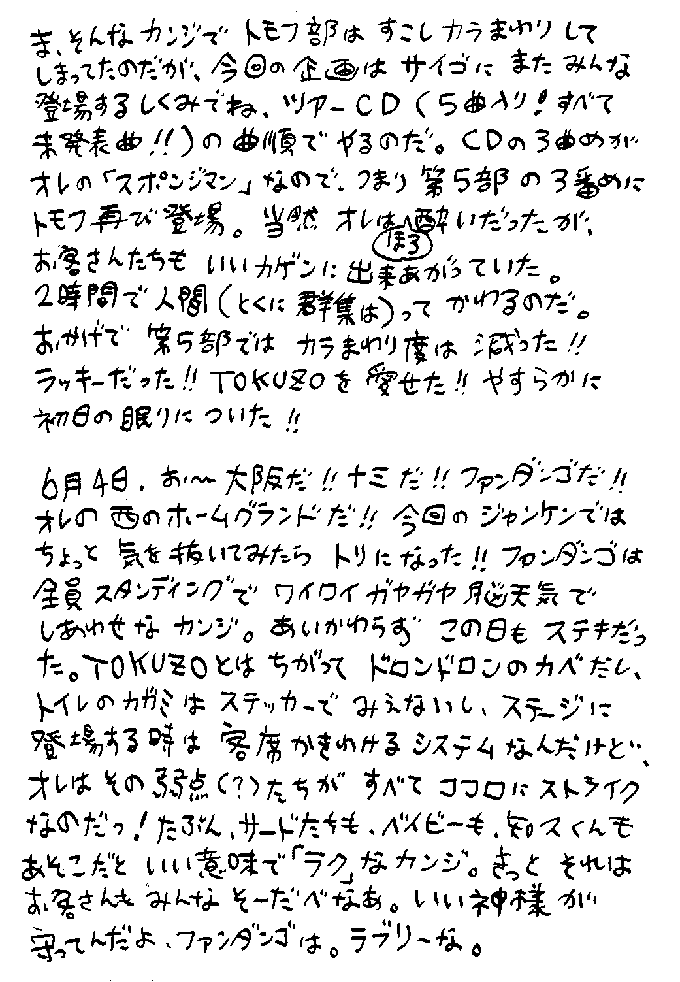 ま、そんなカンジで トモフ部は すこしカラまわりして
しまってたのだが、今回の企画は サイゴに また みんな
登場するしくみでね、ツアーCD(5曲入り!すべて
未発表曲!!)の 曲順で やるのだ。CDの3曲めが
オレの「スポンジマン」なので、つまり 第5部の3番めに
トモフ再び登場。当然 オレは ほろ酔いだったが、
お客さんたちも いいカゲンに 出来あがっていた。
2時間で 人間(とくに 群集は)って かわるのだ。
おかげで 第5部では カラまわり度は 減った!!
ラッキーだった!! TOKUZOを 愛せた!! やすらかに
初日の眠りに ついた!!
6月4日、お〜大阪だ!!ナミだ!!ファンダンゴだ!!
オレの 西のホームグランドだ!! 今回の ジャンケンでは
ちょっと 気を抜いてみたら トリになった!! ファンダンゴは
全員 スタンディングで ワイワイ ガヤガヤ 脳天気で
しあわせな カンジ。あいかわらず この日も ステキだっ
た。TOKUZOとは ちがって ドロンドロンのカベだし、
トイレのカガミは ステッカーで みえないし、ステージに
登場する時は 客席かきわけるシステムなんだけど、
オレは その弱点(?)たちが すべて ココロに ストライク
なのだっ!たぶん、サードたちも、ベイビーも、知久くんも
あそこだと いい意味で「ラク」なカンジ。きっと それは
お客さんも みんな そーだべなあ。いい神様が
守ってんだよ、ファンダンゴは。ラブリーな。